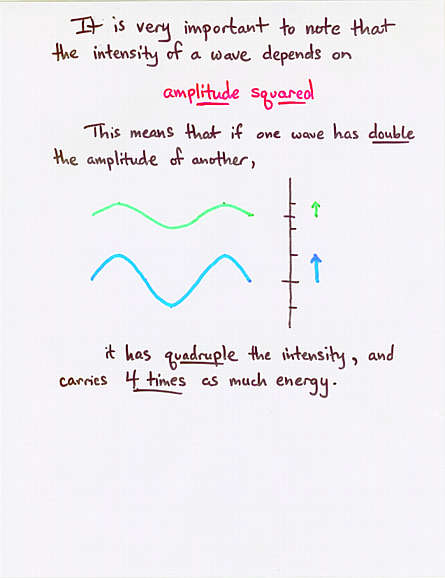 It is very important to note that
the intensity of a wave depends on
amplitude squared
This means that if one wave has double
the amplitude of another,
it has quadruple the intensity, and
carries 4 times as much energy.